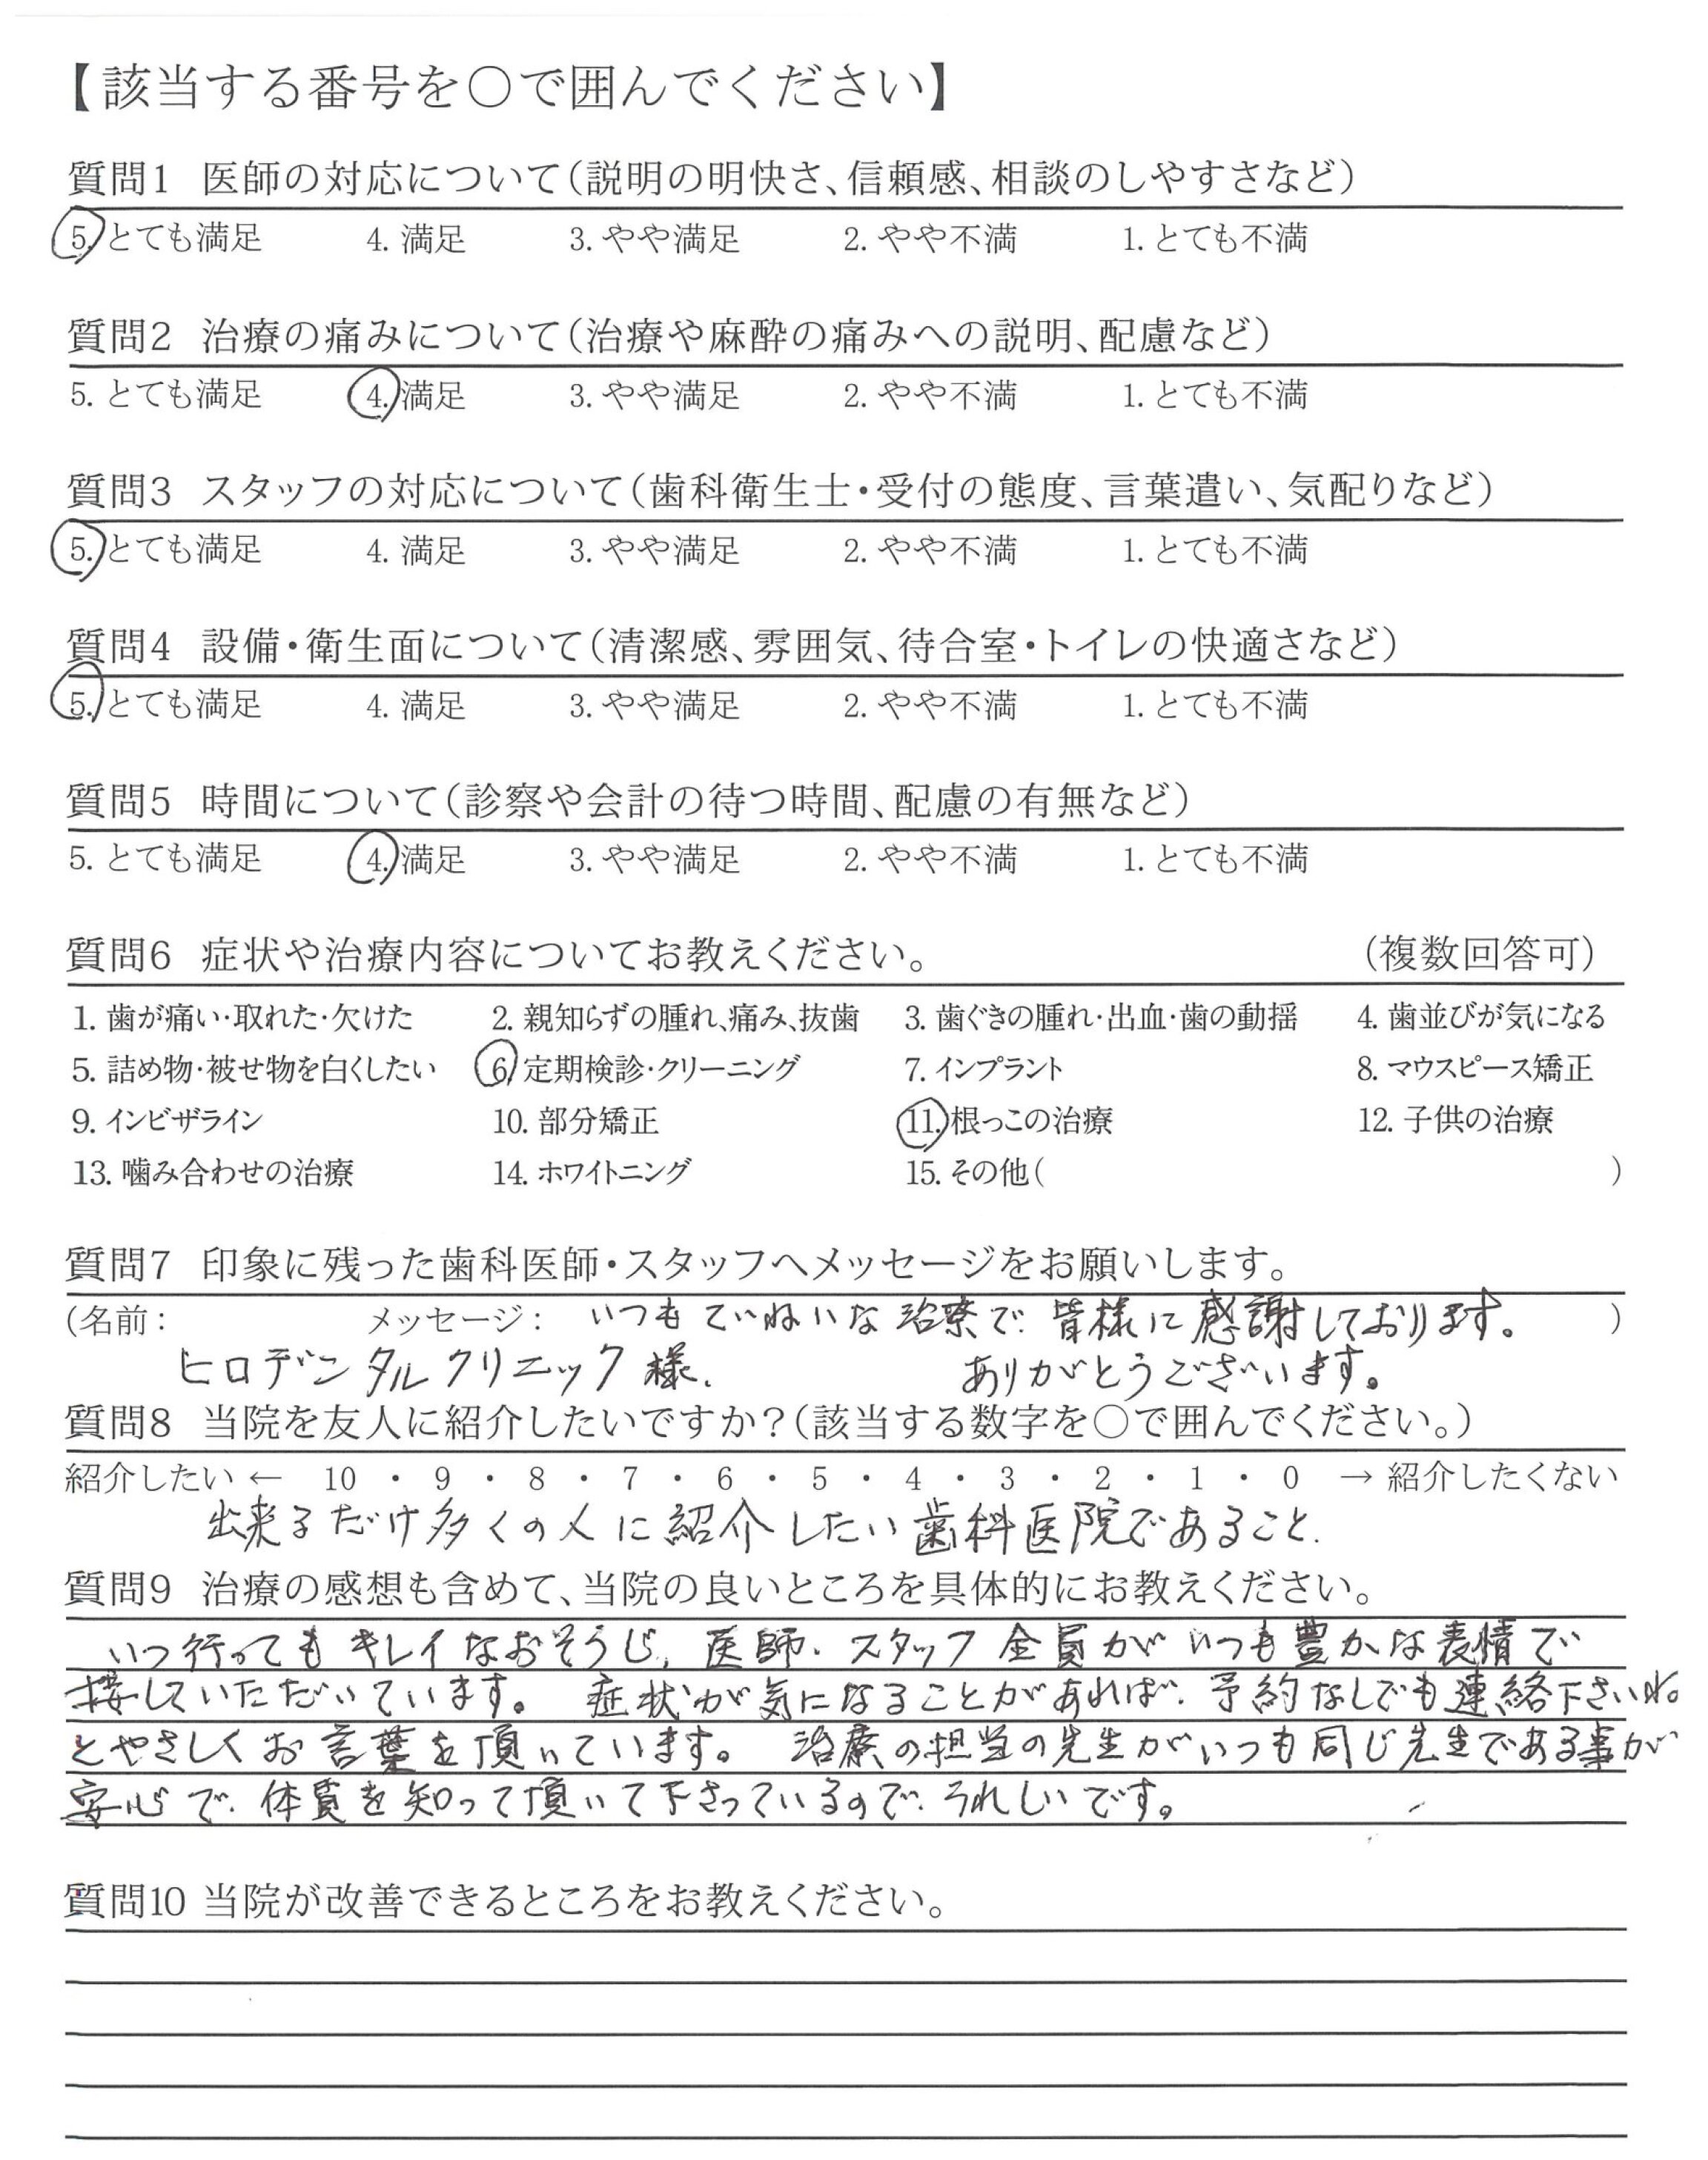 【該当する番号を○で囲んでください】
質問1 医師の対応について(説明の明快さ、信頼感、相談のしやすさなど)
5. とても満足 4. 満足 3. やや満足 2. やや不満 1. とても不満
質問2 治療の痛みについて(治療や麻酔の痛みへの説明、配慮など)
5. とても満足 4. 満足 3. やや満足 2. やや不満 1. とても不満
質問3 スタッフの対応について(歯科衛生士・受付の態度、言葉遣い、気配りなど)
5. とても満足 4. 満足 3. やや満足 2. やや不満 1. とても不満
質問4 設備・衛生面について(清潔感、雰囲気、待合室・トイレの快適さなど)
5. とても満足 4. 満足 3. やや満足 2. やや不満 1. とても不満
質問5 時間について(診察や会計の待つ時間、配慮の有無など)
5. とても満足 4. 満足 3. やや満足 2. やや不満 1. とても不満
質問6 症状や治療内容についてお教えください。 (複数回答可)
1. 歯が痛い・取れた・欠けた 2. 親知らずの腫れ、痛み、抜歯 3. 歯ぐきの腫れ・出血・歯の動揺 4. 歯並びが気になる
5. 詰め物・被せ物を白くしたい 6. 定期検診・クリーニング 7. インプラント 8. マウスピース矯正
9. インビザライン 10. 部分矯正 11. 根っこの治療 12. 子供の治療
13. 噛み合わせの治療 14. ホワイトニング 15. その他( )
質問7 印象に残った歯科医師・スタッフへメッセージをお願いします。
(名前: メッセージ: いつもていねいな治療で、皆様に感謝しております。 )
ヒロデンタルクリニック様. ありがとうございます。
質問8 当院を友人に紹介したいですか?(該当する数字を○で囲んでください。)
紹介したい ← 10 ・ 9 ・ 8 ・ 7 ・ 6 ・ 5 ・ 4 ・ 3 ・ 2 ・ 1 ・ 0 → 紹介したくない
出来るだけ多くの人に紹介したい歯科医院であること.
質問9 治療の感想も含めて、当院の良いところを具体的にお教えください。
いつ行ってもキレイなおそうじ、医師・スタッフ全員がいつも豊かな表情で
接していただいています。 症状が気になることがあれば、予約なしでも連絡下さいね
とやさしくお言葉を頂いています。 治療の担当の先生がいつも同じ先生である事が
安心で、体質を知って頂いて下さっているので、うれしいです。
質問10 当院が改善できるところをお教えください。